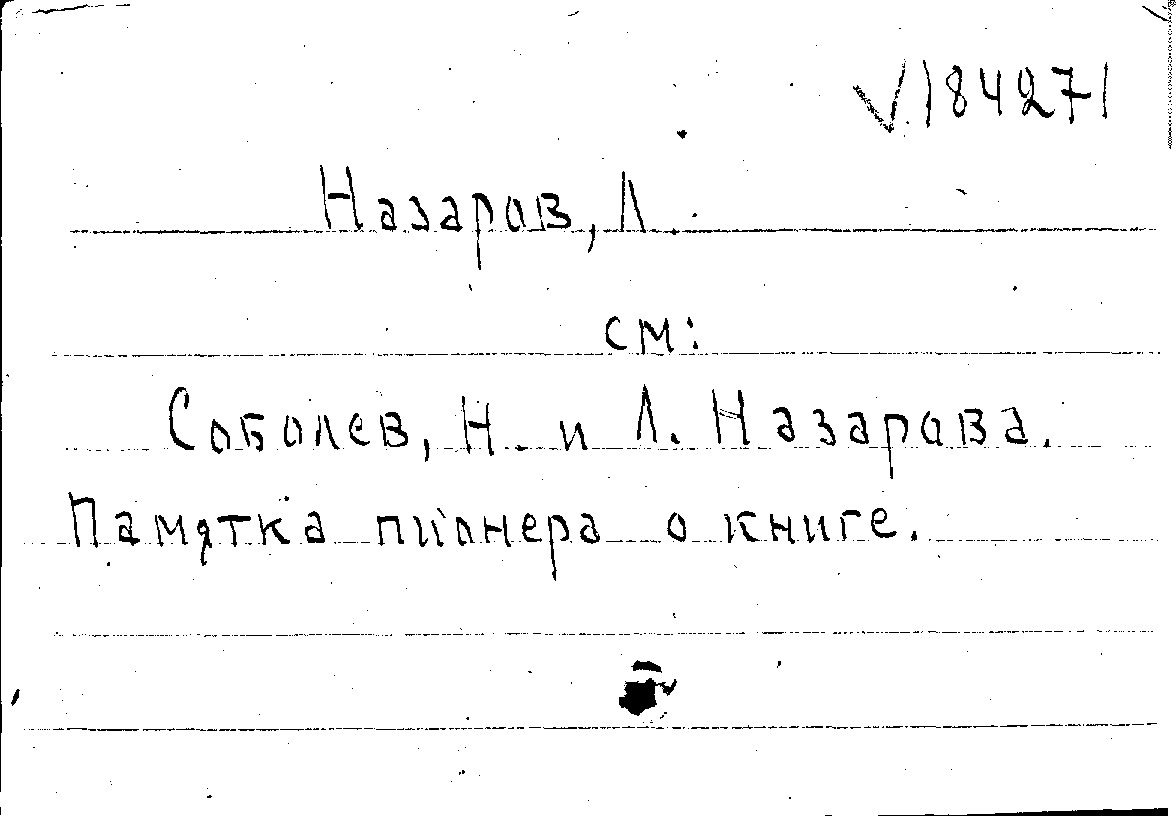 √184271
Назаров, Л.
см:
Соболев, Н. и Л. Назарова.
Памятка пионера о книге.